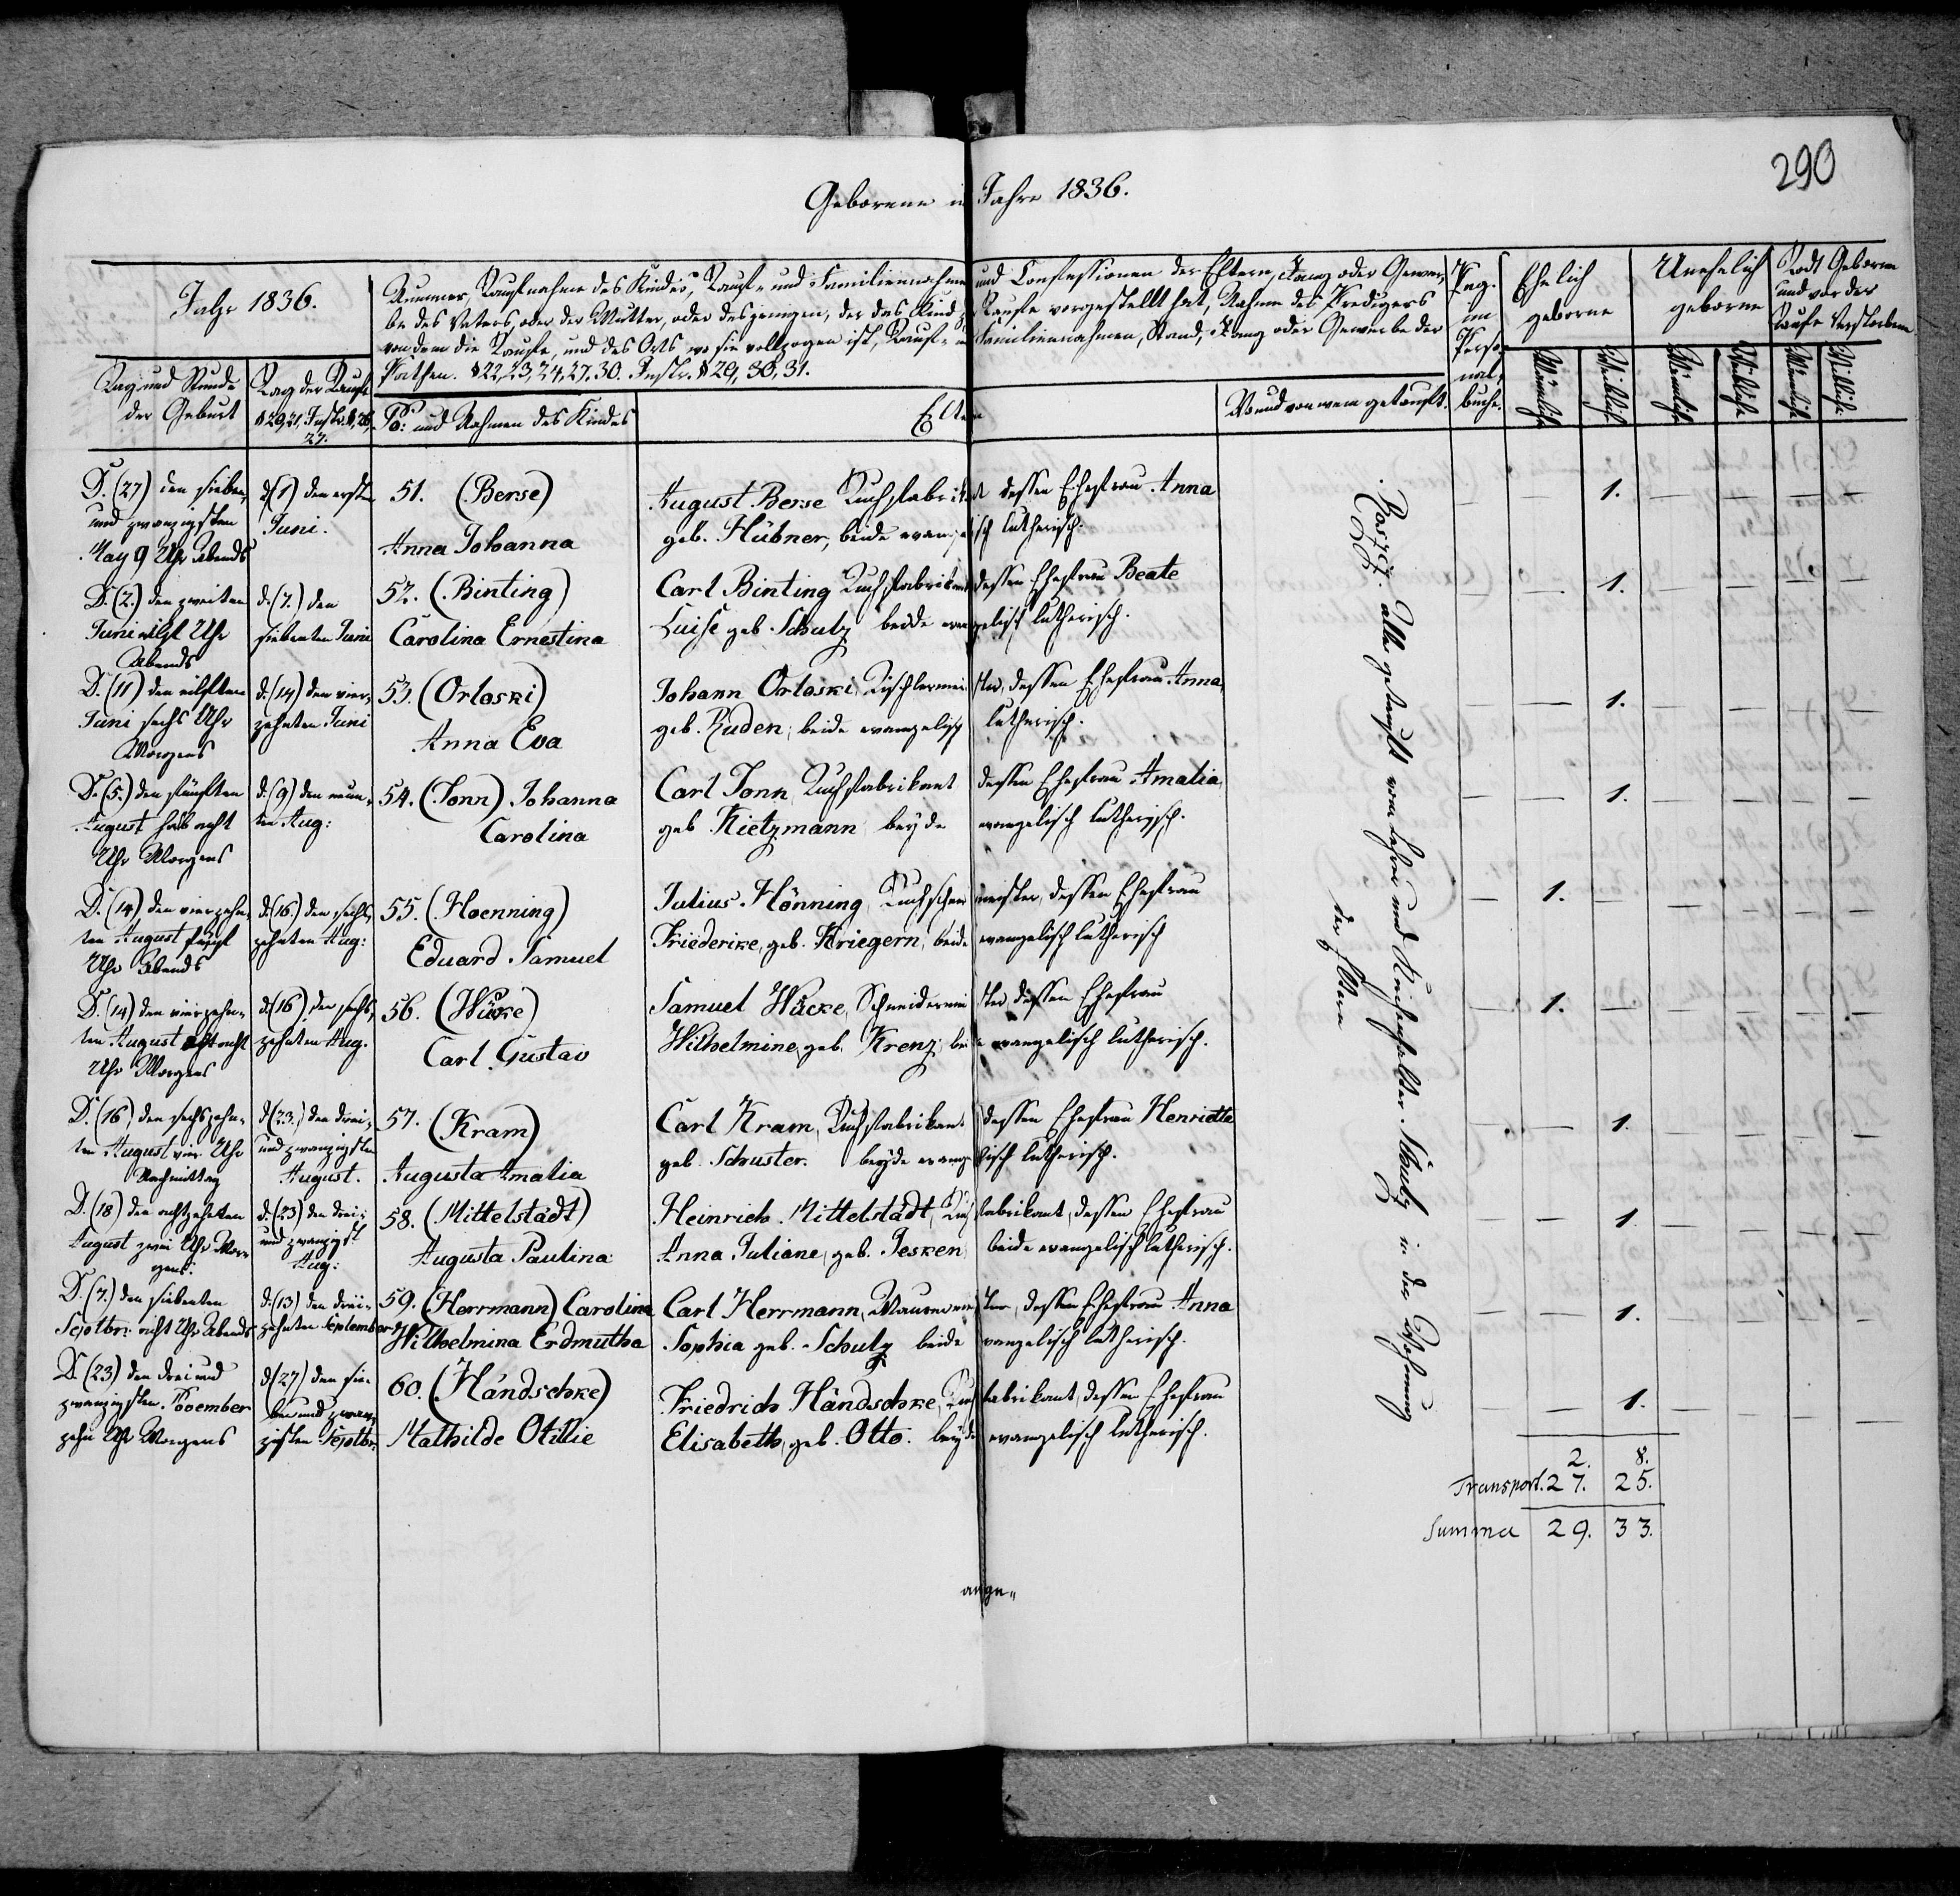 290
Geborene im Jahre 1836.
Jahr 1836.
Nummer, Taufnahme des Kindes, Tauf- und Familiennahmen und Confessionen der Eltern, Rang oder Gewer-
be des Vaters, oder der Mutter, oder desjenigen, der das Kind zur Taufe vorgestellt hat, Nahme des Predigers
von dem die Taufe, und des Orts wo sie vollzogen ist, Tauf- und Familiennahmen, Stand, Rang oder Gewerbe der
Pathen. § 22, 23, 24, 27. 30. Instr. § 29, 30, 31.
Pag.
im
Perso-
nal-
buche.
Ehelich
geborne
Unehelich
geborne
Todt Geborne
und vor der
Taufe Verstorbene
Tag und Stunde
der Geburt
Tag der Taufe
§ 20, 21, Instr. § 26,
27.
No: und Nahmen des Kindes
Eltern
Wo und von wem getauft.
Männlich
Weiblich
Männlich
Weiblich
Männlich
Weiblich
D. (27) den sieben
und zwanzigsten
May 9 Uhr Abends
d (1) den ersten
Juni.
51. (Berse)
Anna Johanna
August Berse Tuchfabrikant dessen Ehefrau Anna
geb. Hübner, beide evangelisch lutherisch.
1.
D. (2.) den zweiten
Juni eilf Uhr
Abends
d. (7.) den
siebenten Juni
52. (Binting)
Carolina Ernestina
Carl Binting Tuchfabrikant dessen Ehefrau Beate
Luise geb. Schulz beide evangelisch lutherisch.
1.
D. (11) den eilften
Juni sechs Uhr
Morgens
d. (14) den vier-
zehnten Juni
53. (Orloski)
Anna Eva
Johann Orloski, Tischlermeister, dessen Ehefrau Anna,
geb. Ruden, beide evangelisch lutherisch.
1.
D. (5.) den fünften
August halb acht
Uhr Morgens
d. (9) den neun-
ten Aug:
54. (Jonn) Johanna
Carolina
Carl Jonn Tuchfabrikant dessen Ehefrau Amalia,
geb Kietzmann beyde evangelisch lutherisch.
1.
D. (14) den vierzehn-
ten August fünf
Uhr Abends
d. (16.) den sechs-
zehnten Aug:
55. (Hoenning)
Eduard Samuel
Julius Hönning, Tuchscheermeister, dessen Ehefrau
Friederike, geb. Kriegern, beide evangelisch lutherisch
1.
D. (14) den vierzehn-
ten August acht
Uhr Morgens
d (16) den sechs-
zehnten Aug.
56. (Wüke)
Carl Gustav
Samuel Wücke, Schneidermeister, dessen Ehefrau
Wilhelmine, geb. Krenz, beide evangelisch lutherisch.
1.
D. (16) den sechszehn-
ten August vier Uhr
Nachmittag
d (23.) den drei-
und zwanzigsten
August.
57. (Kram)
Augusta Amalia
Carl Kram, Tuchfabrikant dessen Ehefrau Henriette
geb. Schuster. beyde evangelisch lutherisch.
1.
D. (18) den achtzehnten
August zwei Uhr Mor-
gens.
d. (23) den drei-
und zwanzigst
Aug:
58. (Mittelstädt)
Augusta Paulina
Heinrich Mittelstädt, Tuchfabrikant, dessen Ehefrau
Anna Juliane, geb. Jesken, beide evangelisch lutherisch.
1.
D. (7.) den siebenten
Septbr: acht Uhr Abends
d. (13) den drei-
zehnten September
59. (Herrmann) Carolina
Wilhelmina Erdmutha
Carl Herrmann, Maurermeister, dessen Ehefrau Anna
Sophia geb. Schulz beide evangelisch lutherisch.
1.
D. (23) den drei und
zwanzigsten November
zehn Uhr Morgens
d (27) den sie-
ben und zwan-
zigsten Septbr.
60. (Händschke)
Mathilde Otillie
Friedrich Händschke, Tuchfabrikant, dessen Ehefrau
Elisabeth, geb. Otto. beyde evangelisch lutherisch.
1.
alle getauft vom Lehrer und Schulz in der Wohnung
der Eltern
2. 8.
Transport. 27. 25.
Summa 29. 33.